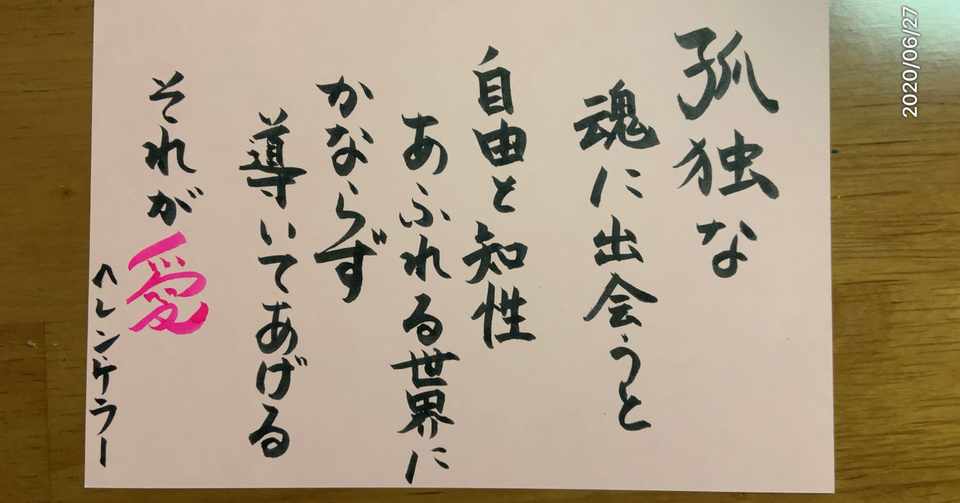 孤独な
魂に出会うと
自由と知性
あふれる世界に
かならず
導いてあげる
それが愛
ヘレン・ケラー
2020/06/27